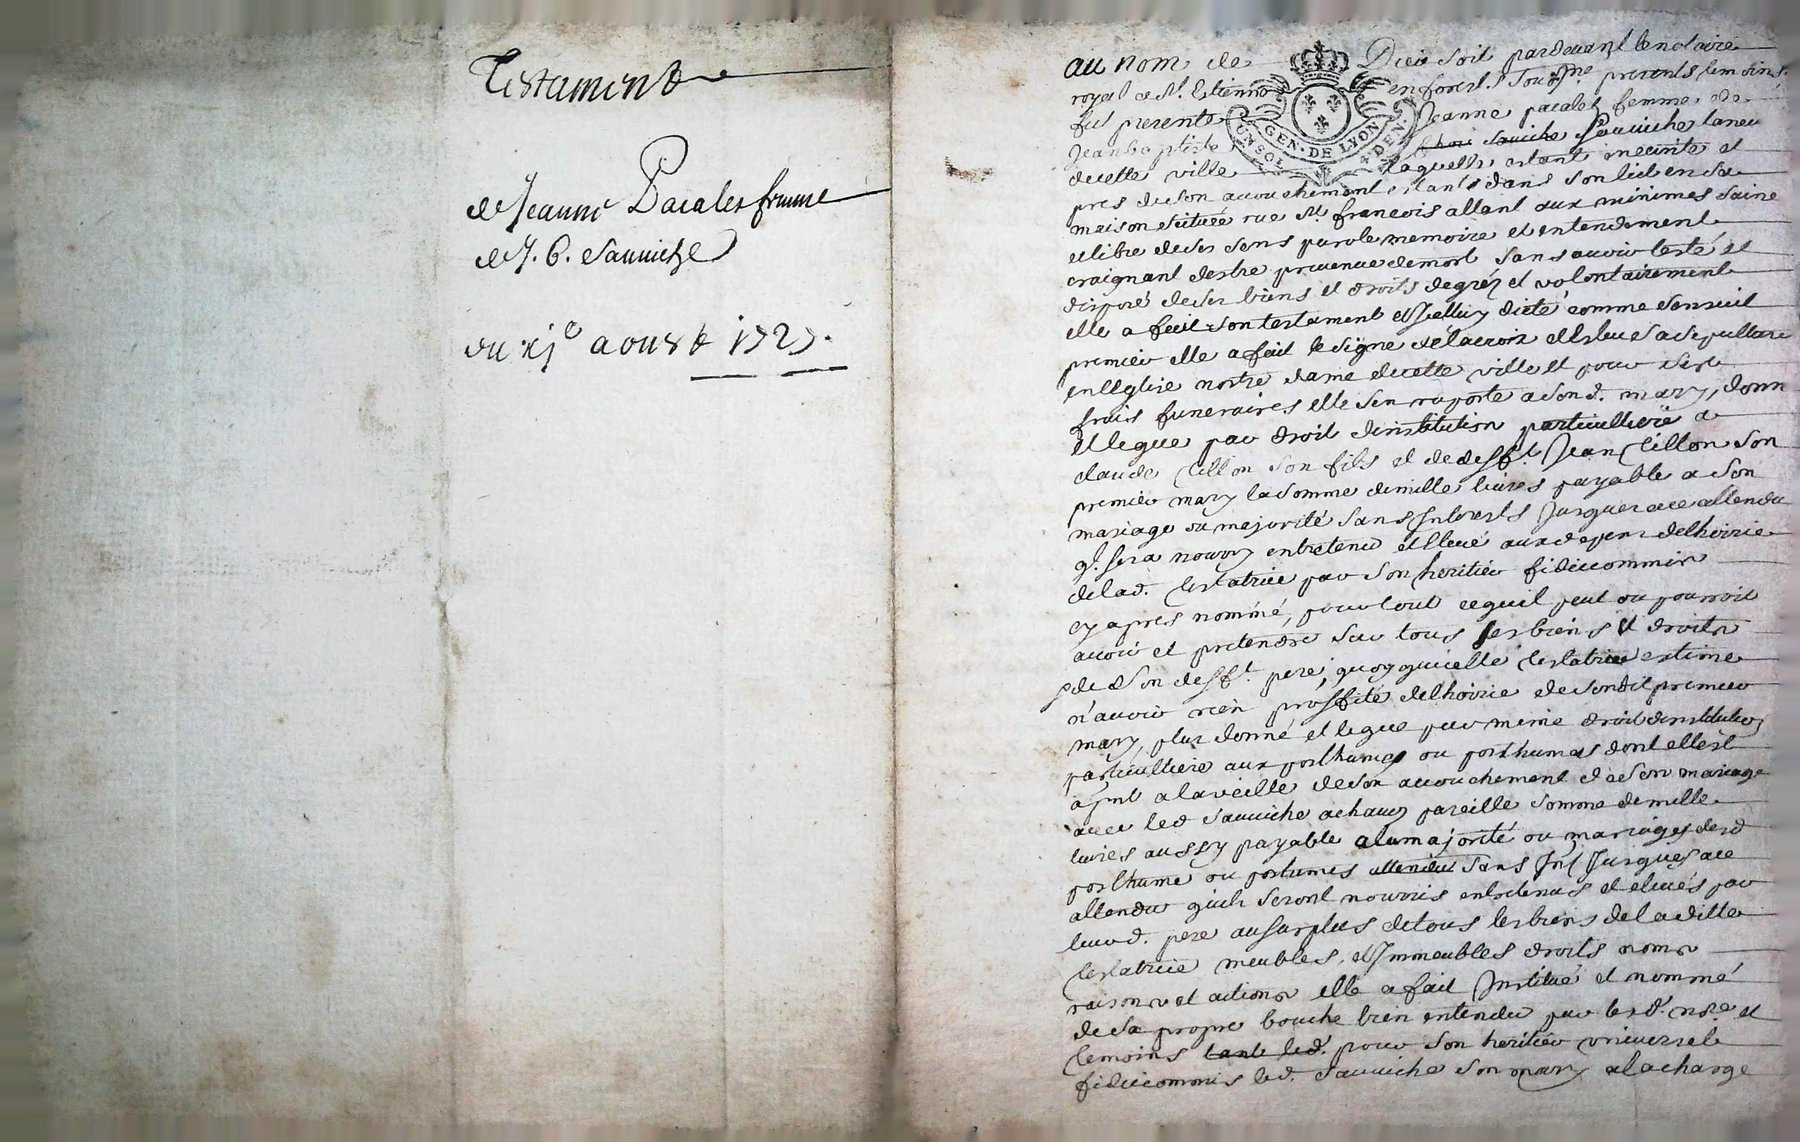 Testament
de Jeanne Pacalet femme
de J. B. Sauuiche
du xj.e aoust 1727.
au nom de Dieu soit pardeuant le notaire
royal de St. Estienne en forest soussne presents temoins
fut presente Jeanne pacalet femme de
Jean baptiste Sauuiche taneur
de cette ville laquelle estant enceinte et
pres de son accouchement estant dans son lict en sa
maison scituée rue St. francois allant aux minimes saine
et libre de ses sens parole memoire et entendement
craignant destre preuenue de mort sans auoir testé et
disposé de ses biens et droits de gréz et volontairement
elle a fait son testament et Jcelluy dicté comme sensuit
premier elle a fait le signe de la croix esleue sa sepulture
en lEglise nostre dame de cette ville et pour ses
frais funeraires elle sen raporte a son d. mary, donne
et legue par droit dinstitution particulliere a
claude tillon son fils et de defft. Jean tillon son
premier mary la somme de mille liures payable a son
mariage ou majorité sans Jnterests Jusques a ce attendu
ql. sera nourry entretenu et Eleué aux depens de lhoirie
de lad. testatrice par son heritier fideicommis
cy apres nommé, pour tout ce quil peut ou pourroit
auoir et pretendre sur tous ses biens et droits
de son defft. pere, quoy quelle testatrice estime
n'auoir rien proffité de lhoirie de son dit premier
mary, plus donné et legue par meme droit dinstitution
particulliere aux posthume ou posthumes dont elle est
a la veille de son accouchement de son mariage
auec led Sauuiche a chacun pareille somme de mille
liures aussy payable a la majorité ou mariages desd
posthume ou postumes attendu sans Jnt Jusques a ce
attendu quils seront nourris entretenus et eleués par
leurd. pere au surplus de tous les biens de la ditte
testatrice meubles, et Jmmeubles droits noms
raisons et actions elle a fait Jnstitué et nommé
de sa propre bouche bien entendu par les d. nore et
temoins tant led. pour son heritier vniuersel
fideicommis led. Sauuiche son mary a la charge
GEN. DE LYON